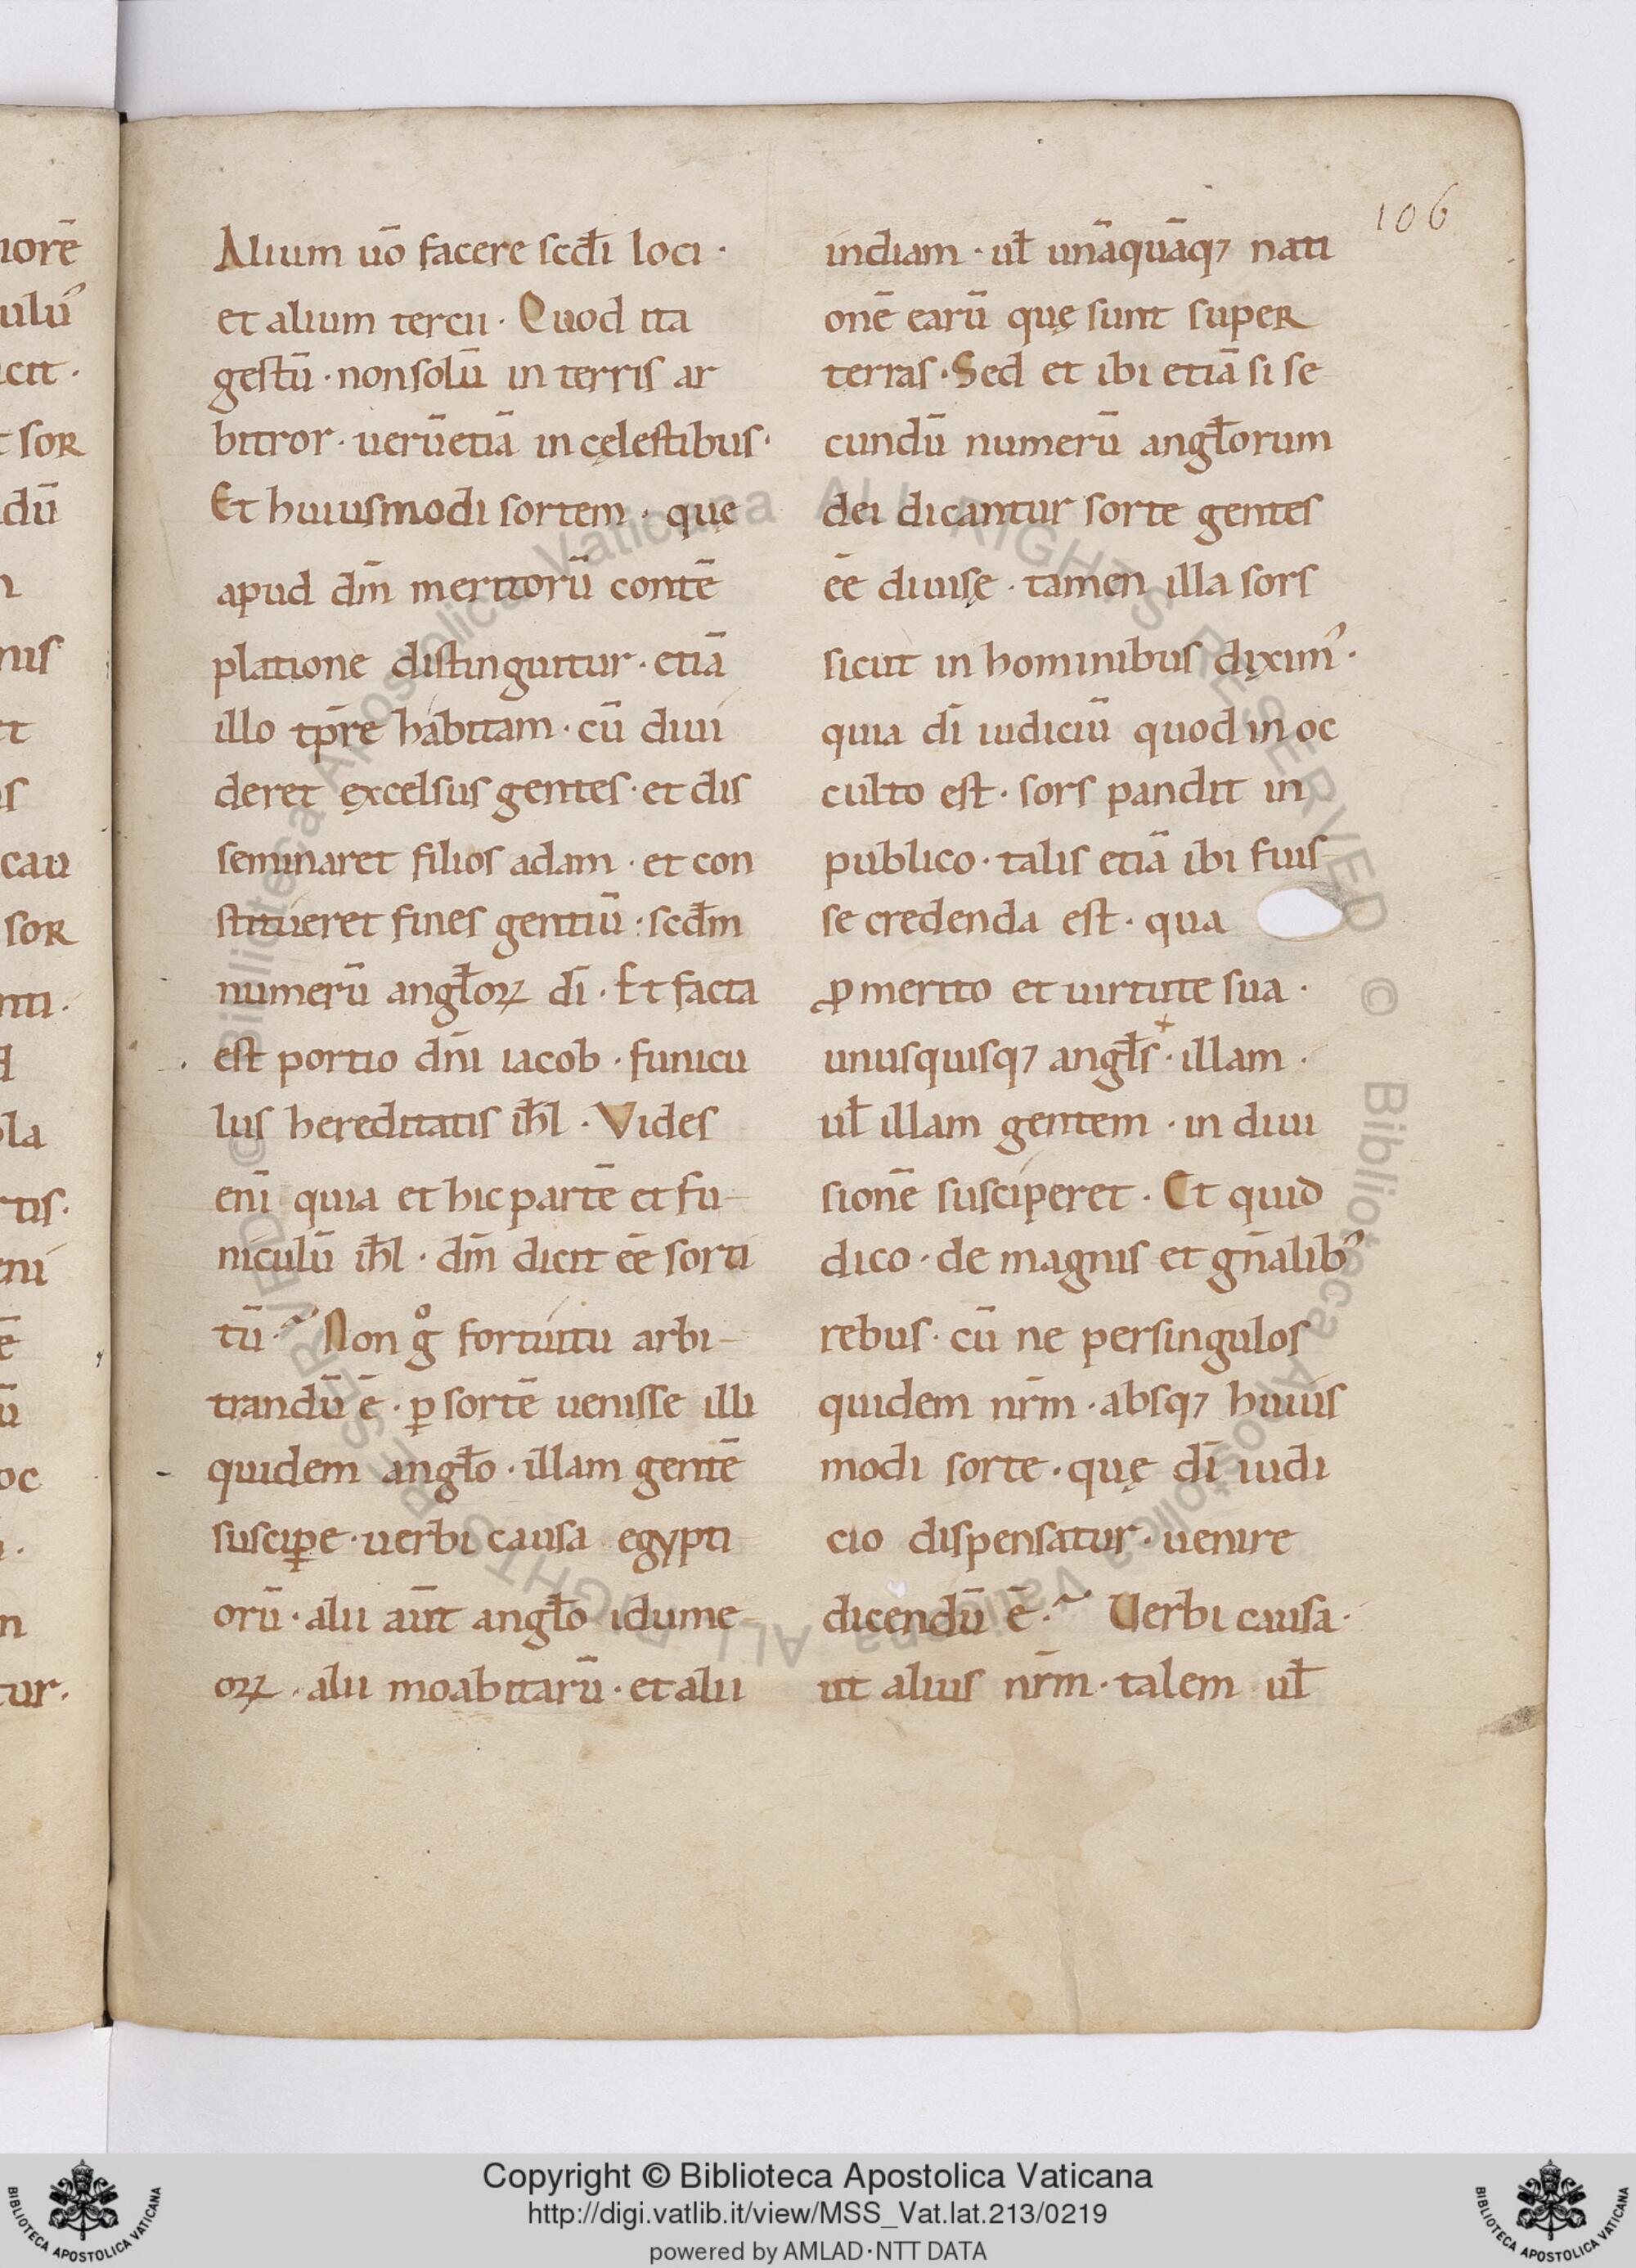 106
Alium uō facere scd̄i loci ·
et alium tercii · Quod ita
gestū · non solū in terris ar
bitror · uerūetiā in cęlestibus ·
Et huiusmodi sortem · quę
apud dm̄ meritorū contē
platione distinguitur · etiā
illo tp̄re habitam · cū diui
deret excelsus gentes · et dis
seminaret filios adam · et con
stitueret fines gentiū : scd̄m
numerū angl̄oꝝ dī · Et facta
est portio dn̄i iacob · funicu
lus hereditatis ih̄l · Vides
enī quia et hic partē et fu-
niculū ih̄l · dm̄ dicit ēe sorti
tū · Non gͦ fortuitu arbi-
trandū ē · ꝑ sortē uenisse illi
quidem angl̄o · illam gentē
susciꝑe · uerbi causa egypti
orū · alii aūt angl̄o idume-
oꝝ · alii moabitarū · et alii
indiam · ul̄ unāquāq⁊ nati
onē earū quę sunt super
terras · Sed et ibi etiā si se
cundū numerū angl̄orum
dei dicantur sorte gentes
ēe diuisę · tamen illa sors
sicut in hominibus diximꝰ ·
quia dī iudiciū quod in oc
culto est · sors pandit in
publico · talis etiā ibi fuis-
se credenda est · qua
ꝓ merito et uirtute sua ·
unusquisq⁊ angl̄s · illam ·
ul̄ illam gentem · in diui
sionē susciperet · Et quid
dico · de magnis et gn̄alibꝰ
rebus · cū ne per singulos
quidem nr̄m · absq⁊ huius
modi sorte · quę dī iudi
cio dispensatur · uenire
dicendū ē · Uerbi causa ·
ut alius nr̄m · talem ul̄
Copyright © Biblioteca Apostolica Vaticana
http://digi.vatlib.it/view/MSS_Vat.lat.213/0219
powered by AMLAD·NTT DATA